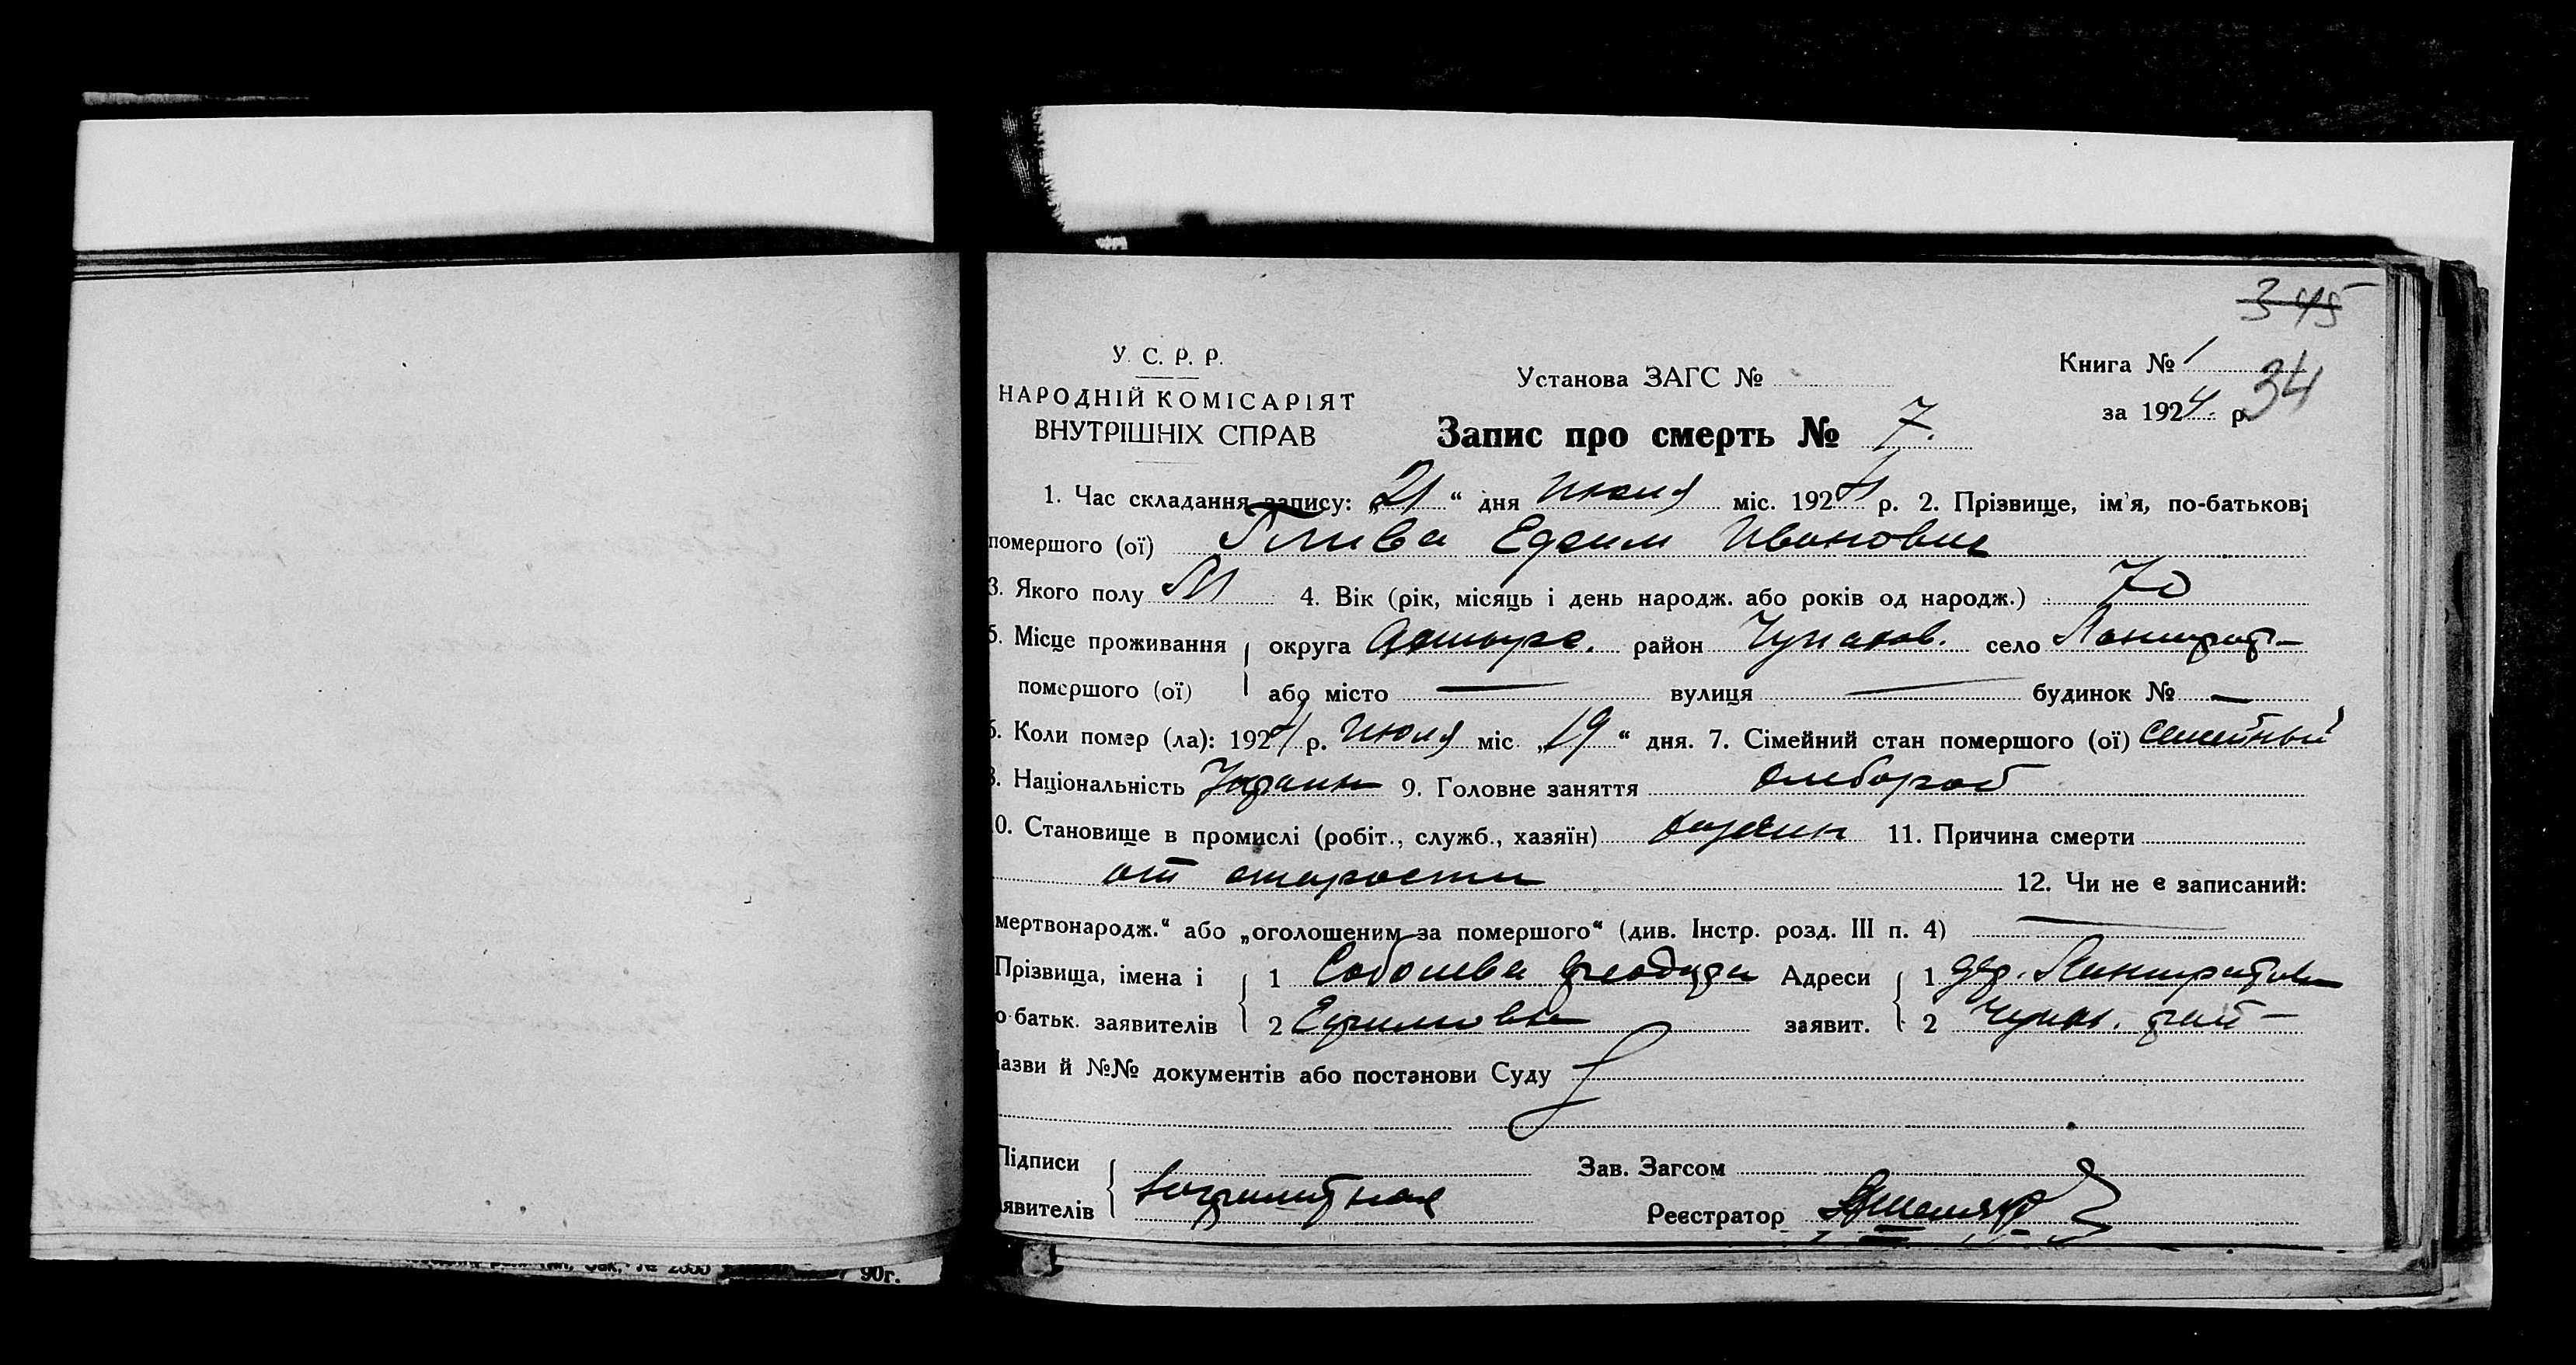 345
У. С. Р. Р.
НАРОДНІЙ КОМІСАРІЯТ
ВНУТРІШНІХ СПРАВ
Установа ЗАГС №
Книга № 1
за 1924 р.
34
Запис про смерть № 7.
1. Час складання запису: „21“ дня Июля міс. 1924 р. 2. Прізвище, ім'я, по-батькові
помершого (ої) Ивановис
3. Якого полу М 4. Вік (рік, місяць і день народж. або років од народж.) 70
5. Місце проживання округа район Чупахов. село
помершого (ої) або місто — вулиця — будинок № —
6. Коли помер (ла): 1924 р. Июля міс. „19“ дня. 7. Сімейний стан помершого (ої) семейный
8. Національність Украин 9. Головне заняття хлебороб
10. Становище в промислі (робіт., служб., хазяїн) хазяин 11. Причина смерти
от старости 12. Чи не є записаний:
мертвонародж.“ або „оголошеним за помершого“ (див. Інстр. розд. III п. 4) —
Прізвища, імена і 1 Адреси 1
о-батьк. заявителів 2 заявит. 2 Чупах. рай—
азви й №№ документів або постанови Суду
Підписи Зав. Загсом
явителів Реєстратор
90г.